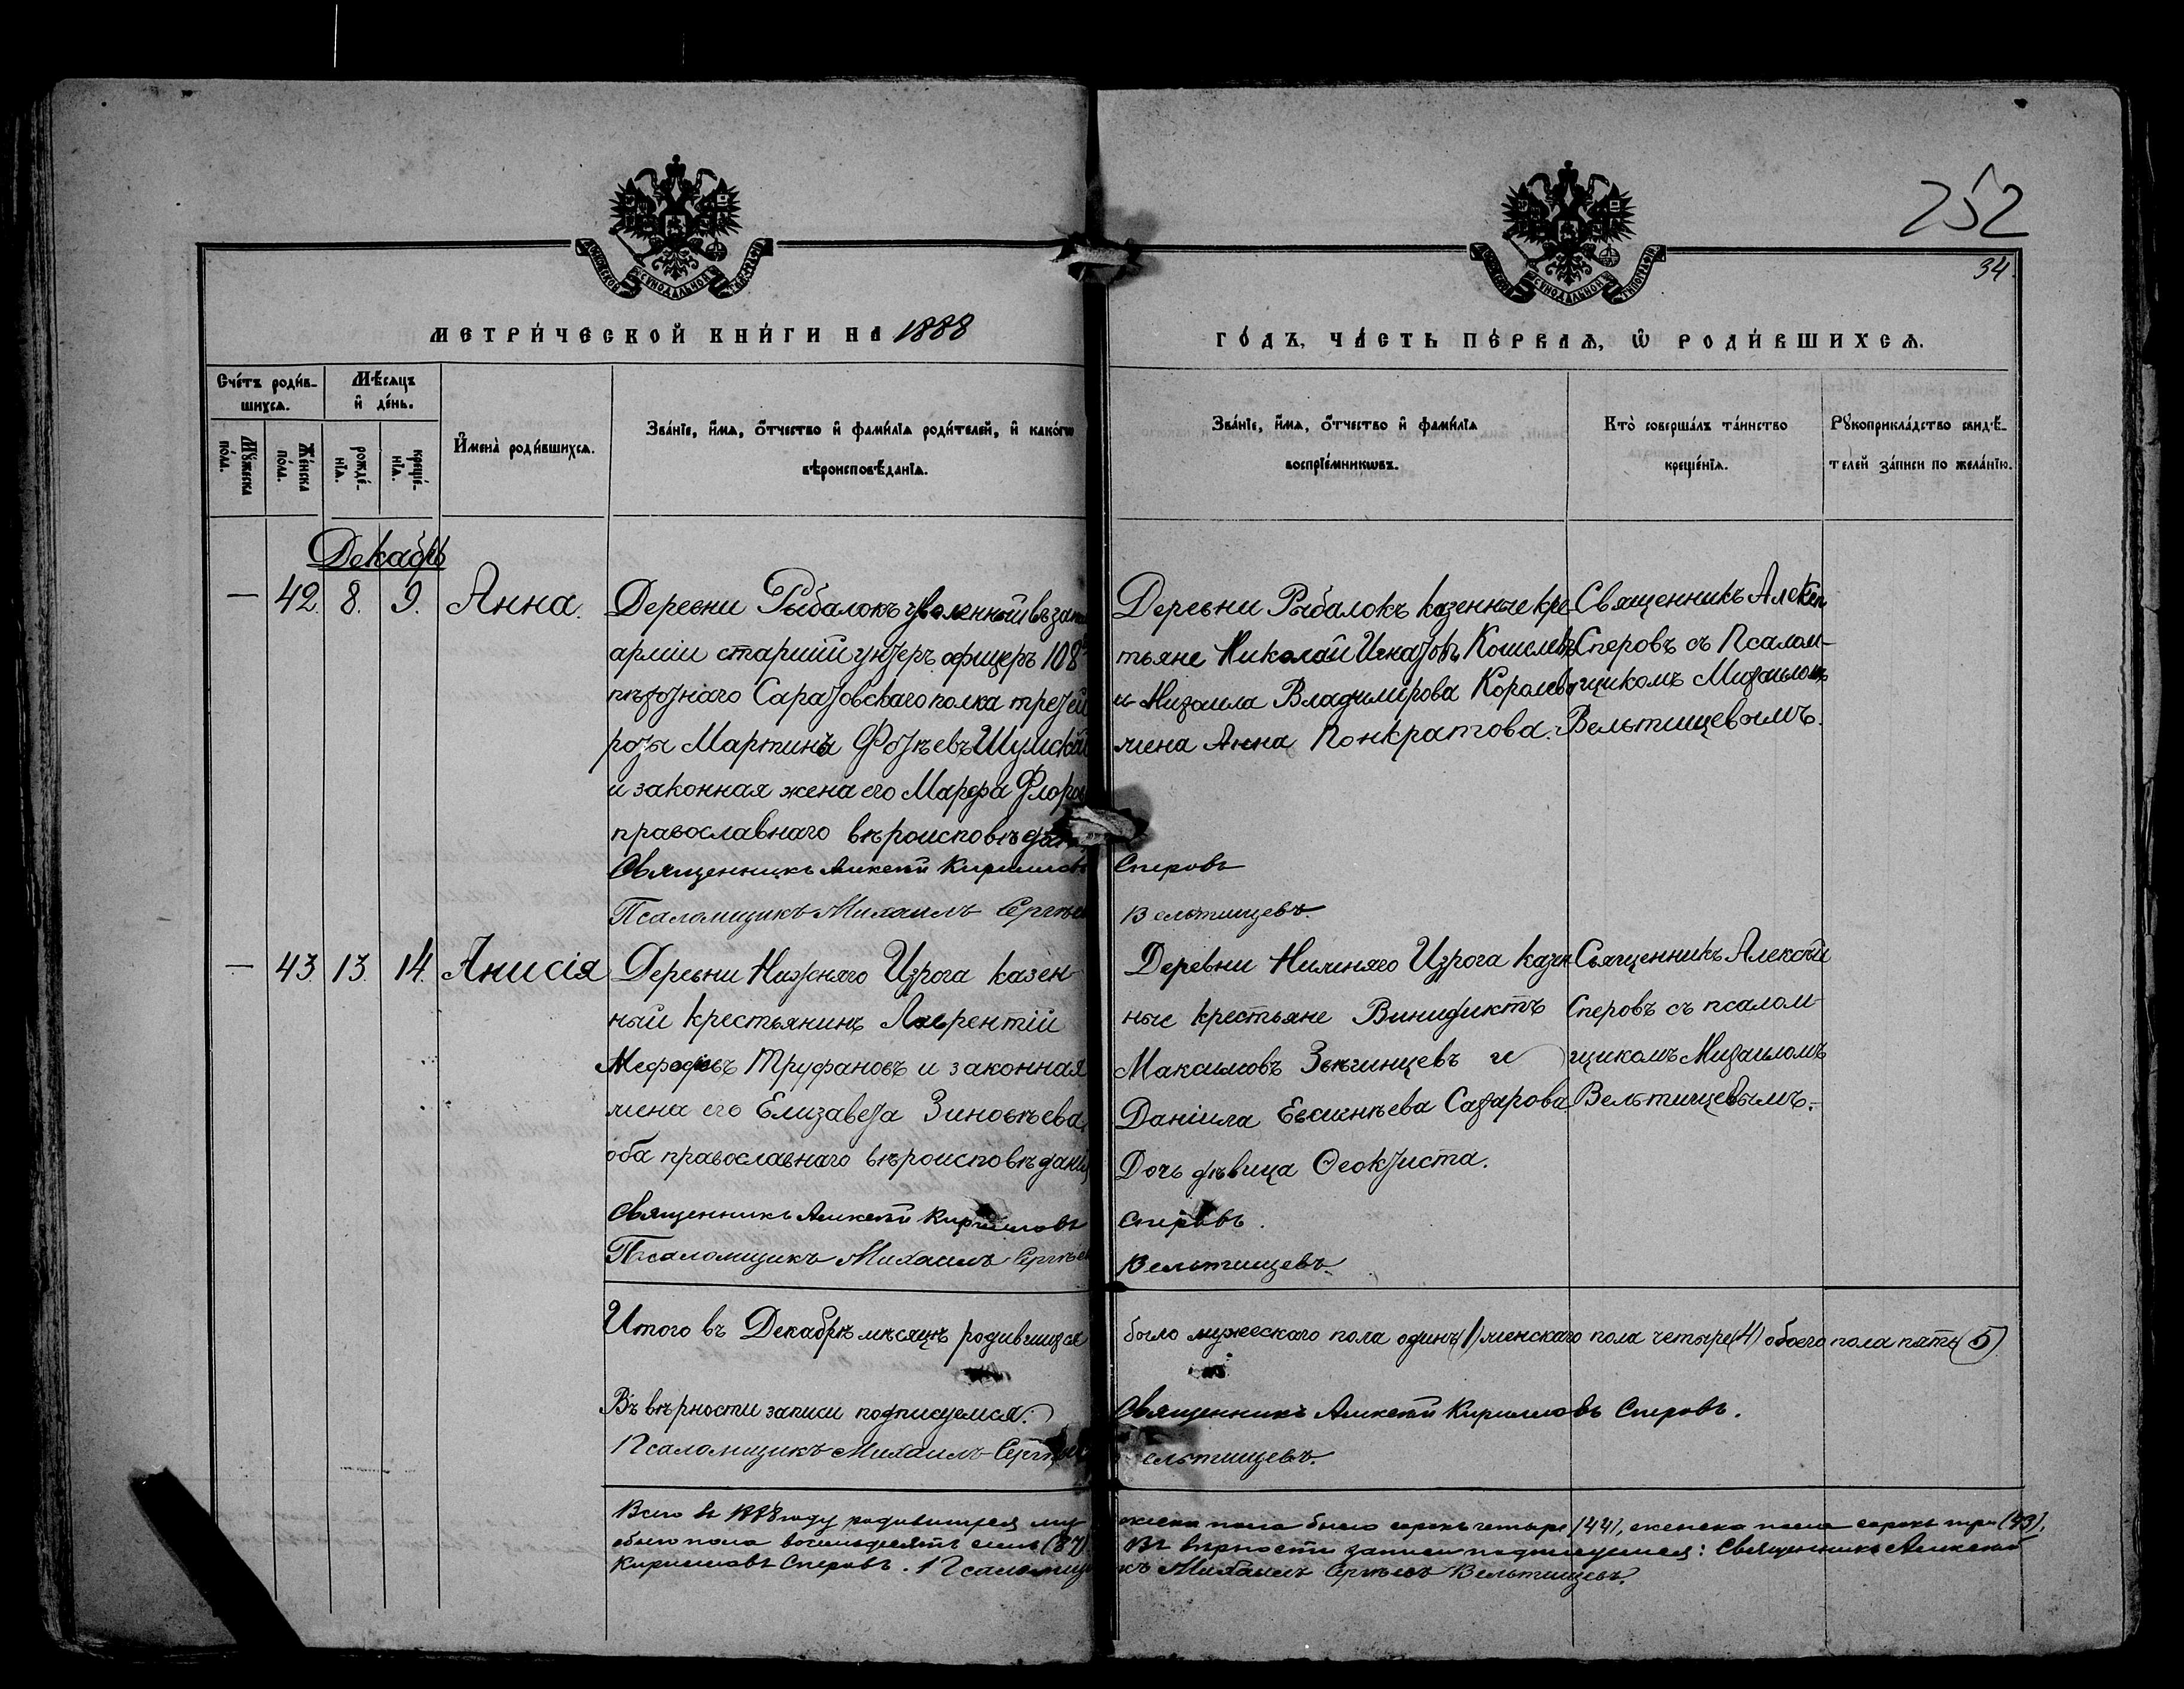 252
34.
МОСКОВСКОЙ СѴНОДАЛЬНОЙ ТИПОГРАФІИ
МОСКОВСКОЙ СѴНОДАЛЬНОЙ ТИПОГРАФІИ
МЕТРИ́ЧЕСКОЙ КНИ́ГИ НА 1888
ГО́ДЪ, ЧА́СТЬ ПЕ́РВАѦ, Ѡ҆ РОДИ́ВШИХСѦ.
Сче́тъ роди́в-
шихсѧ.
Мꙋ́жеска по́ла.
Же́нска по́ла.
Мѣ́сѧцъ
и҆ де́нь.
рожде́-
нїѧ.
креще́-
нїѧ.
И҆мена̀ роди́вшихсѧ.
Зва́нїе, и҆́мѧ, ѻ҆́тчество и҆ фами́лїѧ роди́телей, и҆ како́гѡ
вѣроисповѣ́данїѧ.
Зва́нїе, и҆́мѧ, ѻ҆́тчество и҆ фами́лїѧ
воспрїе́мникѡвъ.
Кто̀ соверша́лъ та́инство
креще́нїѧ.
Рꙋкоприкла́дство свидѣ́-
телей за́писи по жела́нїю.
Декабрь
— 42. 8. 9. Анна.
Деревни Рыбалокъ уволенный въ запас
арміи старшій унтеръ офицеръ 108го
пѣхотнаго Саратовскаго полка третей
роты Мартинъ Фотѣевъ Шумскій
и законная жена его Марфа Флоров
православнаго вѣроисповѣдан
Священникъ Алексѣй Кирилловъ
Псаломщикъ Михаилъ Сергѣев
Деревни Рыбалокъ казенные кре-
тьяне Николай Игнатовъ Кошелевъ
и Михаила Владимірова Королева
жена Анна Понкратова.
Сперовъ
Вельтищевъ.
Священникъ Алексѣй
Сперовъ съ Псалом-
щикомъ Михаиломъ
Вельтищевымъ.
— 43. 13. 14. Анисія
Деревни Нижняго Изрога казен-
ный крестьянинъ Лаврентій
Мефодьевъ Труфановъ и законная
жена его Елизавета Зиновьева,
оба православнаго вѣроисповѣданія
Священникъ Алексѣй Кирилловъ
Псаломщикъ Михаилъ Сергѣев
Деревни Нижняго Изрога казен
ные крестьяне Винидиктъ
Максимовъ Звягинцевъ и
Даніила Евсигнѣева Сахарова
Дочь дѣвица Ѳеоктиста.
Сперовъ.
Вельтищевъ.
Священникъ Алексѣй
Сперовъ съ псалом-
щикомъ Михаиломъ
Вельтищевымъ.
Итого въ Декабрѣ мѣсяцѣ родившихся было мужескаго пола одинъ (1) женскаго пола четыре (4) обоего пола пять (5)
Въ вѣрности записи подписуемся: Священникъ Алексѣй Кирилловъ Сперовъ.
Псаломщикъ Михаилъ Сергѣев Вельтищевъ.
Всего въ 1888 году родившихся мужеска пола было сорокъ четыре (44), женска пола сорокъ три (43),
обоего пола восемьдесятъ семь (87). Въ вѣрности записи подписуемся: Священникъ Алексѣй
Кирилловъ Сперовъ. Псаломщикъ Михаилъ Сергѣевъ Вельтищевъ.